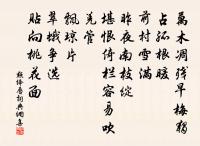 萬木凋殘早梅獨
占孤根暖
前村雪滿
昨夜南枝綻
堪恨倚欄容易吹
羌管
飄瓊片
翠蛾爭選
貼向桃花面